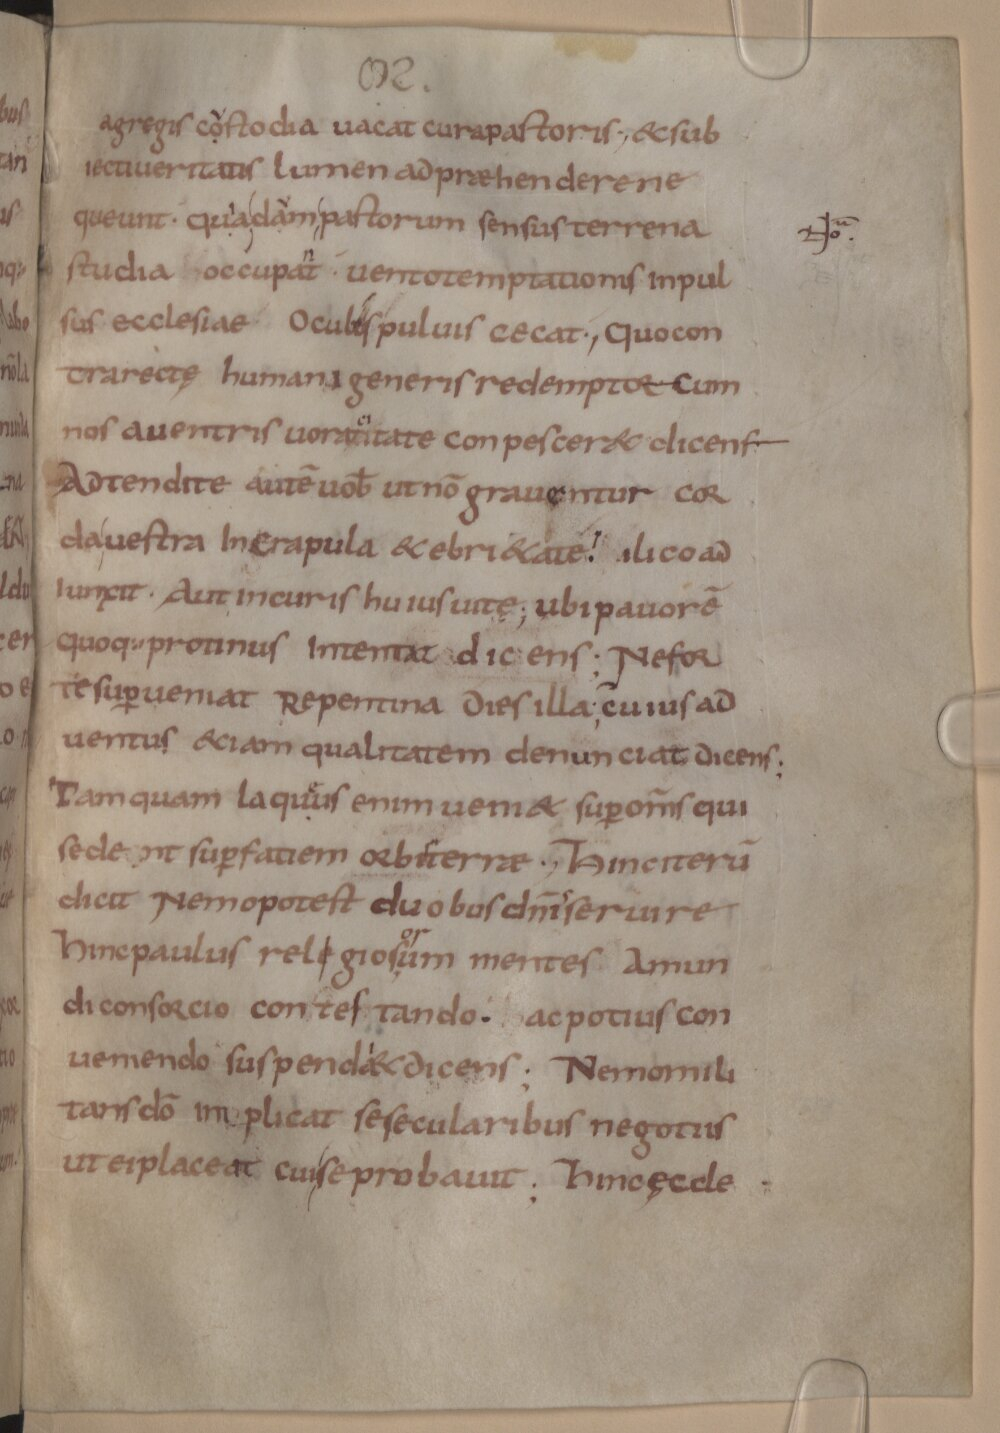 agregis cọ̈stodia uacat curapastoris·, &sub
iectiueritatis lumen adpraehenderene
queunt· quiadȧm pastorum sensus terrena
studia occupaⁿt· uentotemptationis inpul
sus ecclesiae Oculis puluis cecat·, Quocon
trarectę humani generis redemptor Cum
nos auentris uoracitate conpescer& dicens
Adtendite autē uob̄ ut nō grauentur cor
da uestra In crapula & ebri&ate· ilicoad
iuncit· Aut incuris huius uitę; ubi pauorē
quoq; protinus Intentat dicens; Nefor
te sup̱ueniat Repentina dies illa; cuius ad
uentus &iam qualitatem denunciat dicens;
Tamquam laqueus enim ueni& sup̱ om̄s qui
sedent sup̱ faciem orbis terrae·, Hinciterū
dicit Nemopotest duobus dn̄is seruire
Hincpaulus religiosorum mentes Amun
di consorcio contestando· ac potius con
ueniendo suspend& dicens; Nemomili
tans dō implicat sesecularibus negotiis
ut eiplaceat cui se probauit; Hinc ęccle